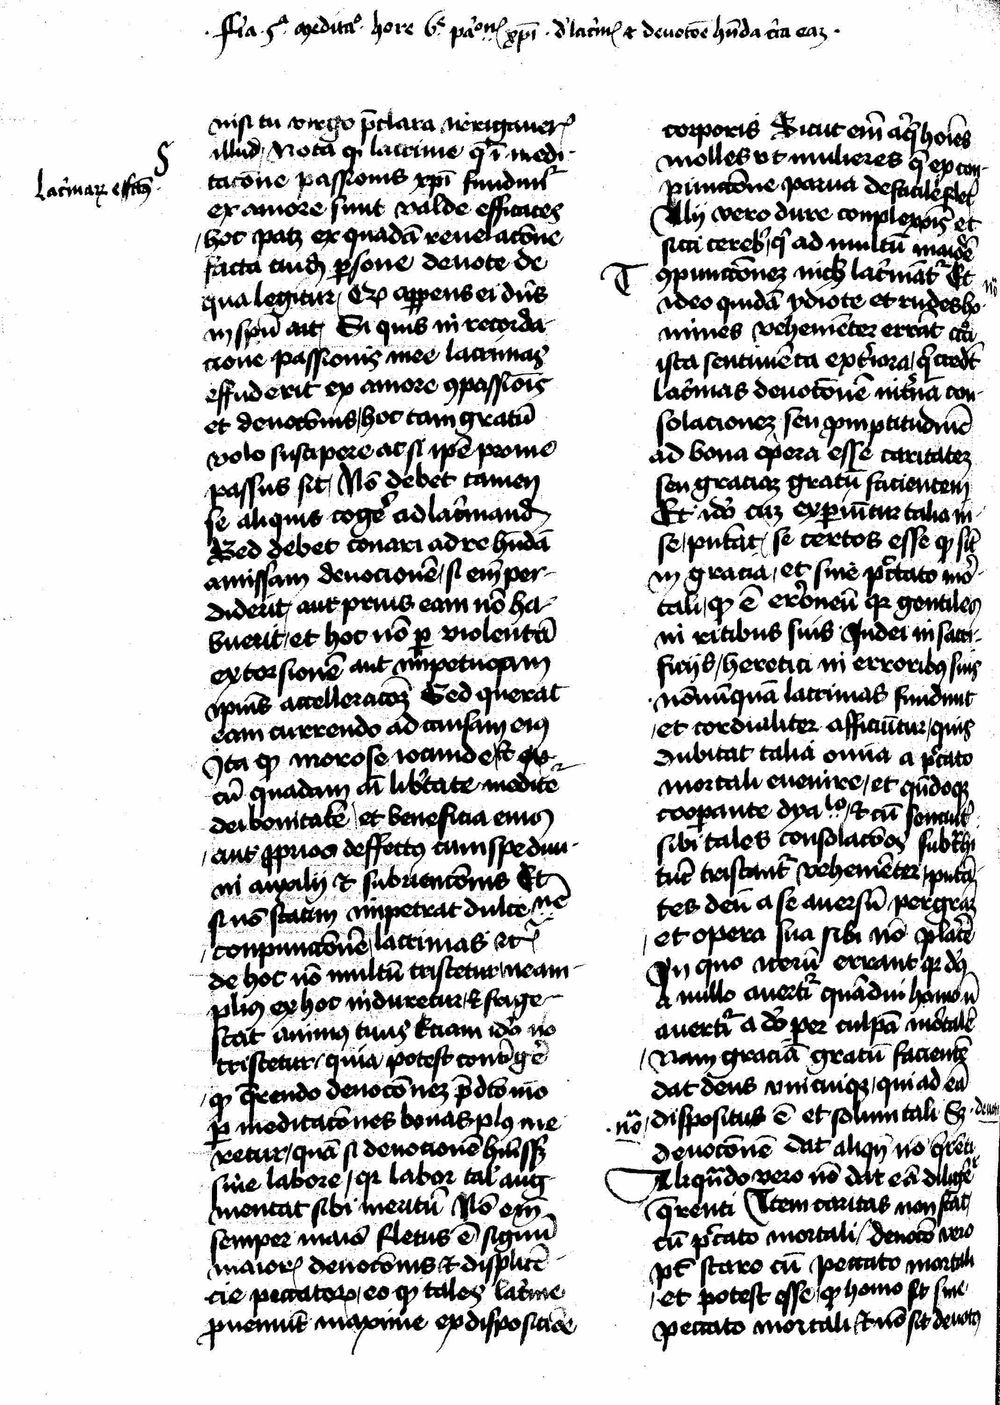 Fia 5ª meditaº hore 6e paōnis xpi d' lacrīs et devotōe hn̄da circa eaz
nisi tu virgo p̄clara irrigaveris
illud. Nota qꝫ lacrime q̄ ī medi-
Lacrimarum effctus
tacōne passionis xp̄i fundūtur
ex amore sunt valde efficaces
hoc patz ex quadā revelacōne
facta cuidam ꝑsone devote de
qua legitur. apparens ei dn̄s
in spū ait. Si quis in recorda-
cione passionis mee lacrimas
effuderit ex amore ꝯpassiōis
et devocōnis, hoc tam gratū
volo suscipere ac si ipse pro me
passus sit. Nō debet tamen
se aliquis cogere ad lacrīmand
Sed debet conari ad rehn̄dā
amissam devocionē, si em̄ per-
diderit, aut prius eam nō ha-
buerit, et hoc nō ꝑ violentā
extorsionē aut impetuosam
ipius accelleracōnem Sed querat
eam currendo ad causam eius
Ita qꝫ morose iocunde et
cū quadam ai libertate meditet
dei bonitatē, et beneficia eius
aut ꝓprios deffectus cum spe divi-
ni auxilii et subvencōnis Et
si nō statim impetrat dulcem
conpunctōnē, lacrimas etc
de hoc nō multū tristetur, ne am-
plius ex hoc induretur, et frage-
scat animus tuus Etiam idō nō
tristetur, quia potest contīgere
qꝫ q̄rendo devocōnez p̄dcō mō
ꝑ meditacōnes bonas plus me
retur, quā si devocionē huisset
sine labore, qr labor tal' aug
mentat sibi meritū Nō em̄
semper maior fletus ē signū
maioris devocōnis et displicē-
cie peccatorum, eo qꝫ tales lacrime
proveniūt maxime ex disposicōe
corporis Sicut em̄ aliq̄ hoīes
molles ut mulieres q̄ ex con-
punctōne parva de facili flent
Alij vero dure complexiōis et
sicci cerebri, qi ad multū
ꝯpunctōnez nichil lacrimātur Et
ideo quidā ydiote et rudes ho-
nō
mines vehementer errāt circa
ista sentimēta exteriora, q̄ credūt
lacrimas devocōnē internā con-
solacionez seu promptitudinē
ad bona opera esse caritatez
seu graciaz gratū facientem
Et idō cuz experiūtur talia in
se, putāt, se certos esse qꝫ sint
in gracia, et sine peccato mor
tali, qꝫ ē erroneū qr gentiles
in ritibus suis Iudei in sacri-
ficiis, heretici in erroribus suis
nōnūquā lacrimas fundunt
et cordialiter afficiūtur, quis
dubitat talia omnia a peccato
mortali evenire, et qn̄doqꝫ
cooperante dyalo, Et cū
sibi tales consolacōes subtrahū
tur tristant' vehementer, putan
tes deū a se aversū
et opera sua sibi nō placere
In quo verū errant qr ds̄
a nullo avertit' quādiu homo n̄
avertit' a dō per culpā mortalē
Nam graciā gratū facientē
dat deus unicuiqꝫ, qui ad eā
nō dispositus ē et solum tali Sꝫ devo
devocōnē dat aliqn̄ nō q̄renti
Aliqn̄do vero nō dat eā diligēter
q̄renti Item caritas non stat
cū peccato mortali, devocō vero
pt̄ stare cū peccato mortali
et potest esse, qꝫ homo sit sine
peccato mortali, et nō sit devotus